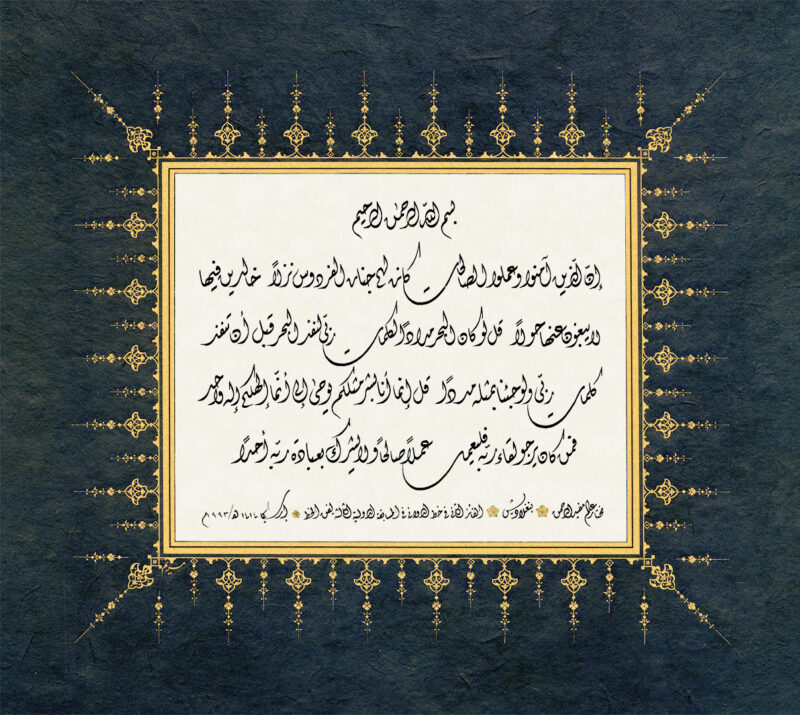 بسم الله الرحمن الرحيم
إن الذين آمنوا وعملوا الصالحات كانت لهم جنات الفردوس نزلاً خالدين فيها
لا يبغون عنها حولاً قل لو كان البحر مداداً لكلمات ربّي لنفد البحر قبل أن تنفد
كلمات ربّي ولو جئنا بمثله مدداً قل إنما أنا بشر مثلكم يوحى إليّ أنّما إلهكم إله واحد
فمن كان يرجو لقاء ربّه فليعمل عملاً صالحاً ولا يشرك بعبادة ربّه أحداً
بنغلادش في خط الديواني في المسابقة الدولية الثالثة لفن الخط ١٤١٤ هـ ١٩٩٣م